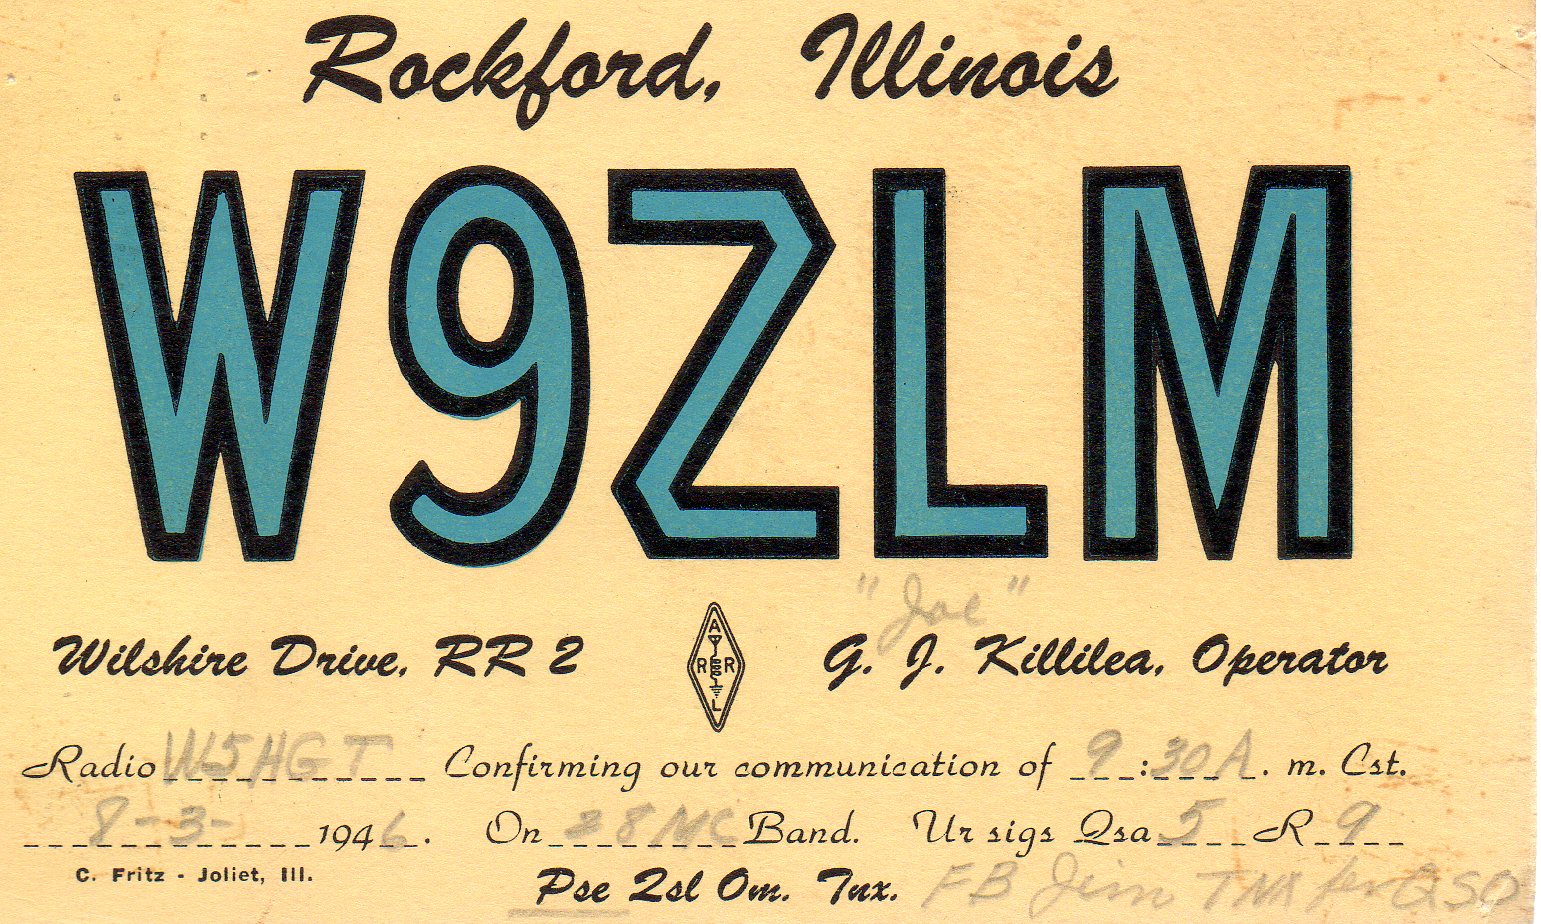 Rockford, Illinois
W9ZLM
"Joe"
Wilshire Drive, RR 2 ARRL G. J. Killilea, Operator
Radio W5HGT Confirming our communication of 9:30 A. m. Cst.
8-3- 1946. On 28 MC Band. Ur sigs Qsa 5 R 9
C. Fritz - Joliet, Ill.
Pse Qsl Om. Tnx. FB Jim TNX for QSO